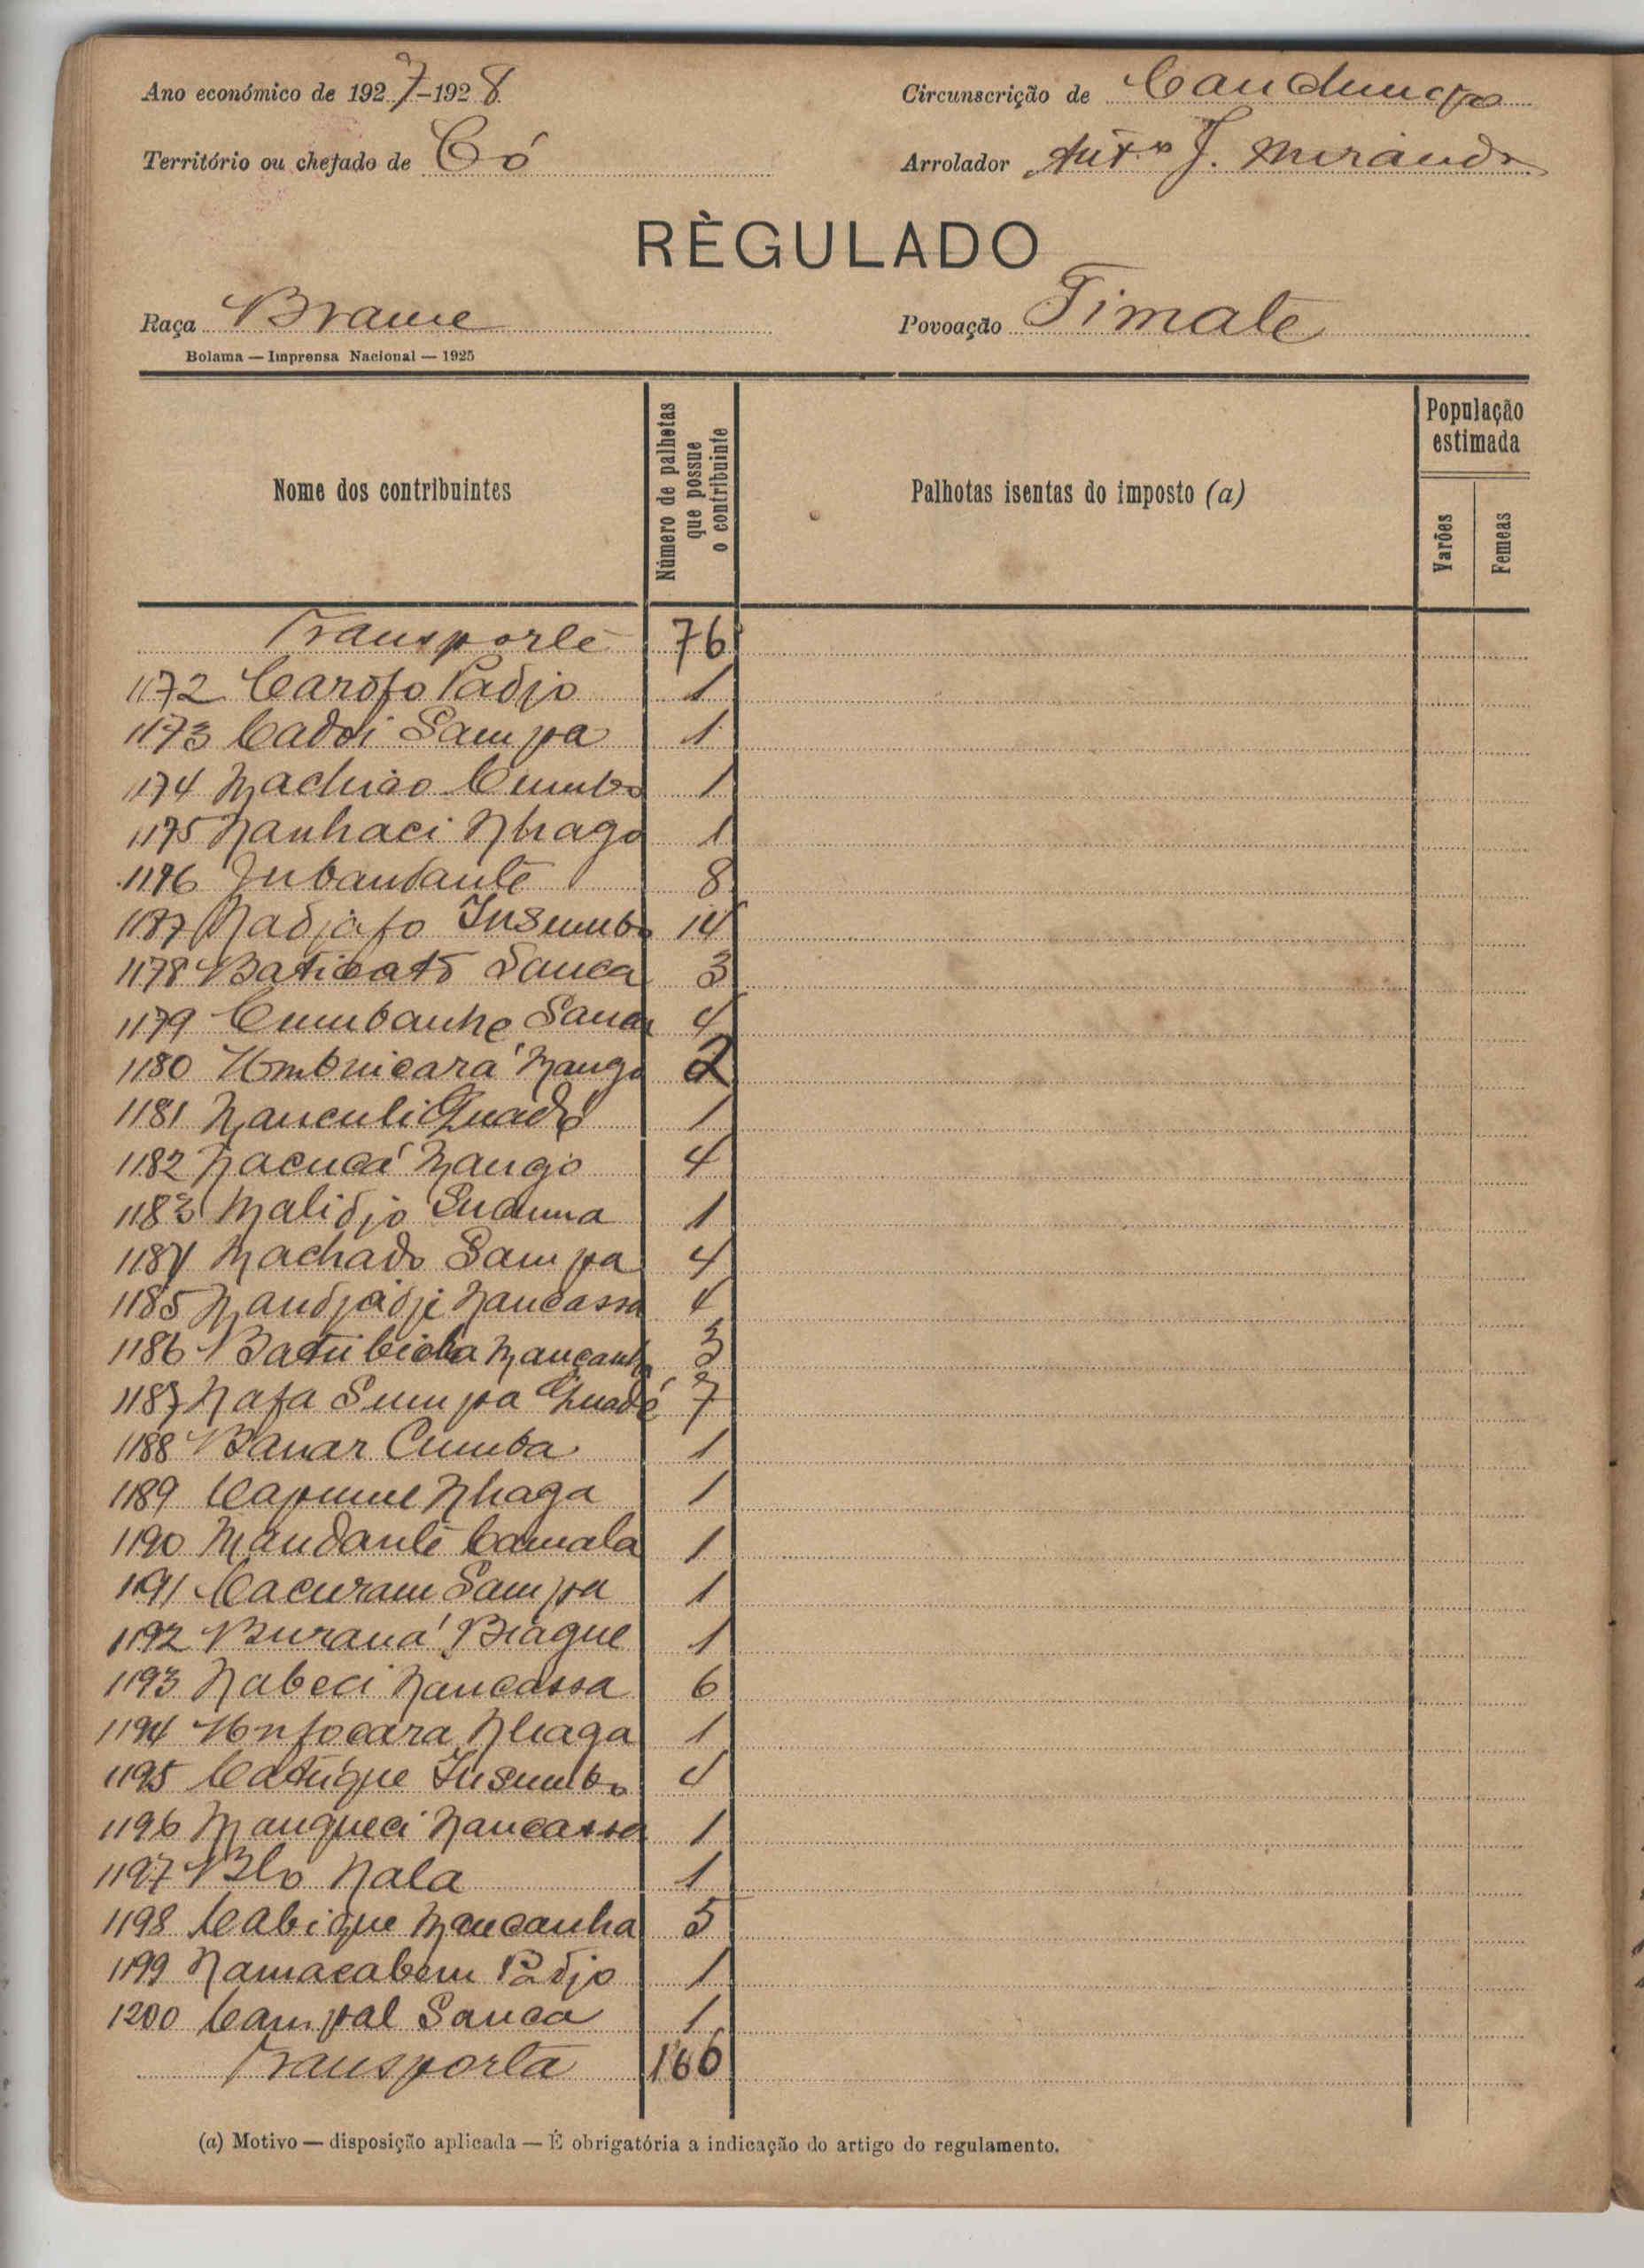 Ano económico de 1927-1928
Circunscrição de Canchungo
Território ou chefado de Có
Arrolador Antº J. Miranda
RÈGULADO
Raça Brame
Povoação Timate
Bolama — Imprensa Nacional — 1925
Nome dos contribuintes
Número de palhotas que possue o contribuinte
Palhotas isentas do imposto (a)
População estimada
Varões
Femeas
Transporte 76
1172 Carofo Padjo 1
1173 Cadoi Sampa 1
1174 Cumba 1
1175 Nanhaci Nhaga 1
1176 8
1187 Nadjafo Insumbo 14
1178 Sanca 3
1179 Cumbanhe Sanca 4
1180 Umbuicará Nango 2
1181 Nanculi Quadé 1
1182 Nacucá Nango 4
1183 Malidjo 1
1184 Machado Sampa 4
1185 Nandjadje Nancassa 4
1186 Mançanha 3
1187 Nafa Sumpa Quadé 7
1188 Banar Cumba 1
1189 Capume Nhaga 1
1190 Mandante Camala 1
1191 Cacuram Sampa 1
1192 Buraná Biague 1
1193 Nabeci Nancassa 6
1194 Unfocara Nhaga 1
1195 Catuque Insumbo 4
1196 Manqueci Nancassa 1
1197 Blo Nala 1
1198 Cabique Mancanha 5
1199 Namacabem Padjo 1
1200 Campal Sanca 1
Transporta 166
(a) Motivo — disposição aplicada — É obrigatória a indicação do artigo do regulamento.